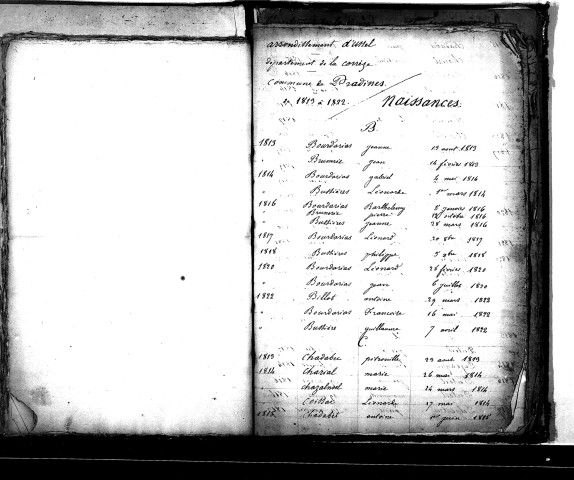 arrondissement d'ussel
département de la corrèze
Commune de Pradines
de 1813 à 1822. Naissances.
B.
1813 Bourdarias jeanne 13 aout 1813
" Brunerie jean 14 février 1813
1814 Bourdarias gabriel 4 mai 1814
" Bussières Léonarde 1er mars 1814
1816 Bourdarias Barthelemy 8 janvier 1816
Brunerie pierre 12 octobre 1816
" Bussières jeanne 28 mars 1816
1817 Bourdarias Léonard 20 8bre 1817
1818 Bussières philippe 5 9bre 1818
1820 Bourdarias Léonard 26 février 1820
" Bourdarias jean 6 juillet 1820
1822 Billot antoine 29 mars 1822
" Bourdarias Francoise 16 mai 1822
" Bussière guillaume 7 avril 1822
C.
1813 Chadabec petronille 23 aout 1813
1814 Charial marie 26 mai 1814
" chazalnoel marie 24 mars 1814
" Léonarde 27 mai 1814
1815 Chadabet antoine 1er juin 1815